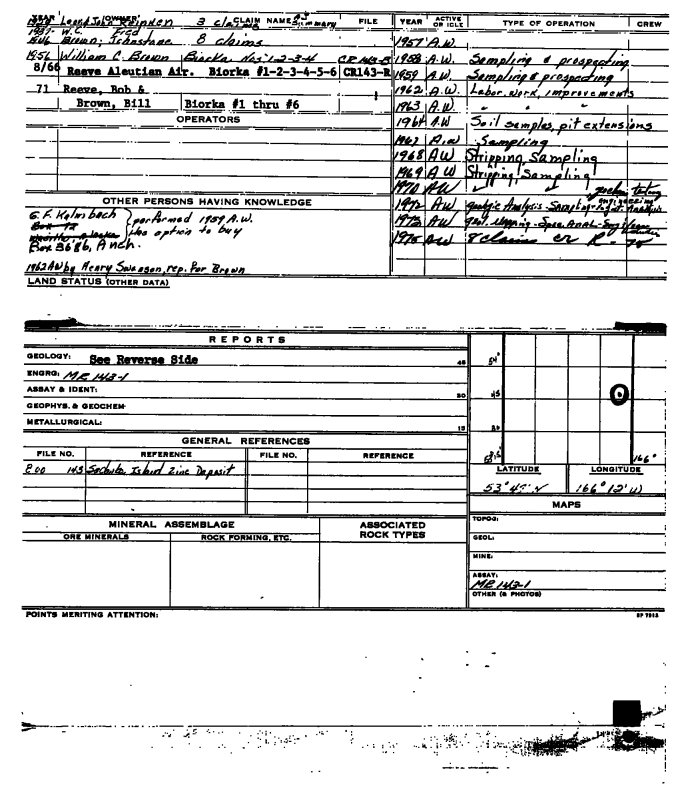 YEAR OWNER CLAIM NAMES FILE
3 claims
1937- W.C. Fied
1946 Brown; Johnstone 8 claims
1956 William C. Brown Biorka Nos. 1-2-3-4 CR 143-R
8/66 Reeve Aleutian Air. Biorka #1-2-3-4-5-6 CR143-R
71 Reeve, Bob &
Brown, Bill Biorka #1 thru #6
OPERATORS
OTHER PERSONS HAVING KNOWLEDGE
G.F. Kalmbach performed 1959 A.W.
Box 72 has option to buy
Box 3686, Anch.
1962 AW by Henry Swanson, rep. for Brown
LAND STATUS (OTHER DATA)
YEAR ACTIVE OR IDLE TYPE OF OPERATION CREW
1957 A.W.
1958 A.W. Sampling & prospecting
1959 A.W. Sampling & prospecting
1962 A.W. Labor, work, improvements
1963 A.W. " "
1964 A.W Soil samples, pit extensions
1967 A.W Sampling
1968 AW Stripping, Sampling
1969 AW Stripping, Sampling
1970 AW testing
1972 AW Geologic Analysis - Sampling - engineering Analysis
1973 AW Geol. Mapping - Spec. Anal. -
1975 AW 8 claims CR R - 75
REPORTS
GEOLOGY: See Reverse Side 45
ENGRG: MR 143-1
ASSAY & IDENT: 30
GEOPHYS. & GEOCHEM
METALLURGICAL: 15
GENERAL REFERENCES
FILE NO. REFERENCE FILE NO. REFERENCE
143 Island Zinc Deposit
MINERAL ASSEMBLAGE ASSOCIATED ROCK TYPES
ORE MINERALS ROCK FORMING, ETC.
POINTS MERITING ATTENTION:
54°
45
30
166°
LATITUDE LONGITUDE
166° 12' W
MAPS
TOPOG:
GEOL:
MINE:
ASSAY:
MR 143-1
OTHER (& PHOTOS)